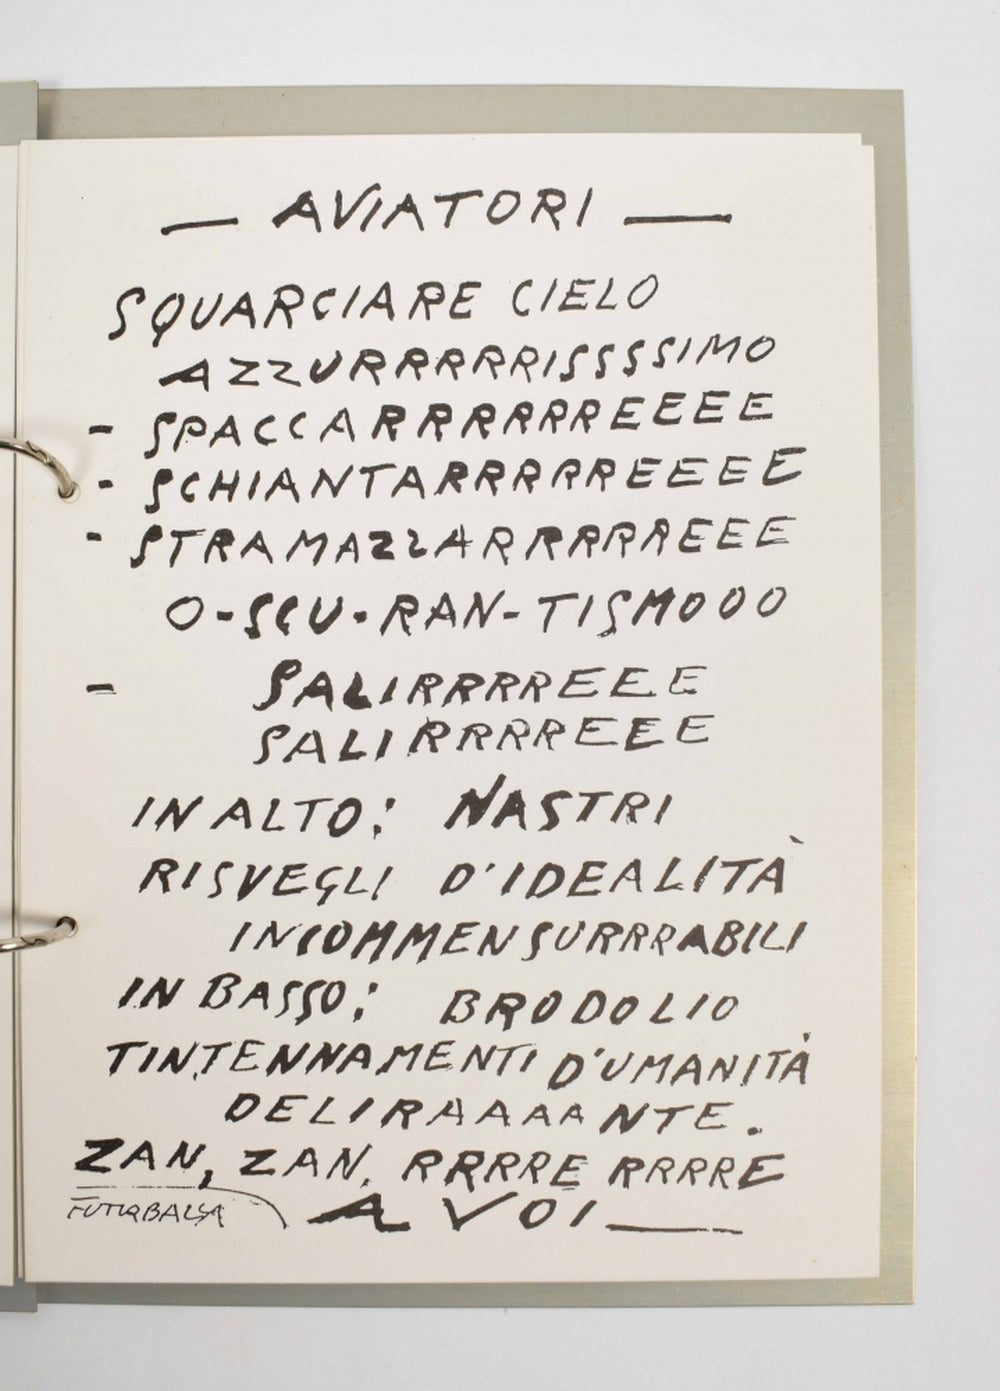 — AVIATORI —
SQUARCIARE CIELO
AZZURRRRRRISSSSIMO
- SPACCARRRRRRREEEE
- SCHIANTARRRRRREEEE
- STRAMAZZARRRRRREEE
O-SCU-RAN-TISMOOO
- SALIRRRRREEE
SALIRRRRREEE
IN ALTO: NASTRI
RISVEGLI D'IDEALITÀ
INCOMMENSURRRRABILI
IN BASSO: BRODOLIO
TINTENNAMENTI D'UMANITÀ
DELIRAAAANTE.
ZAN, ZAN, RRRRRE RRRRRE
FUTURBALLA A VOI —